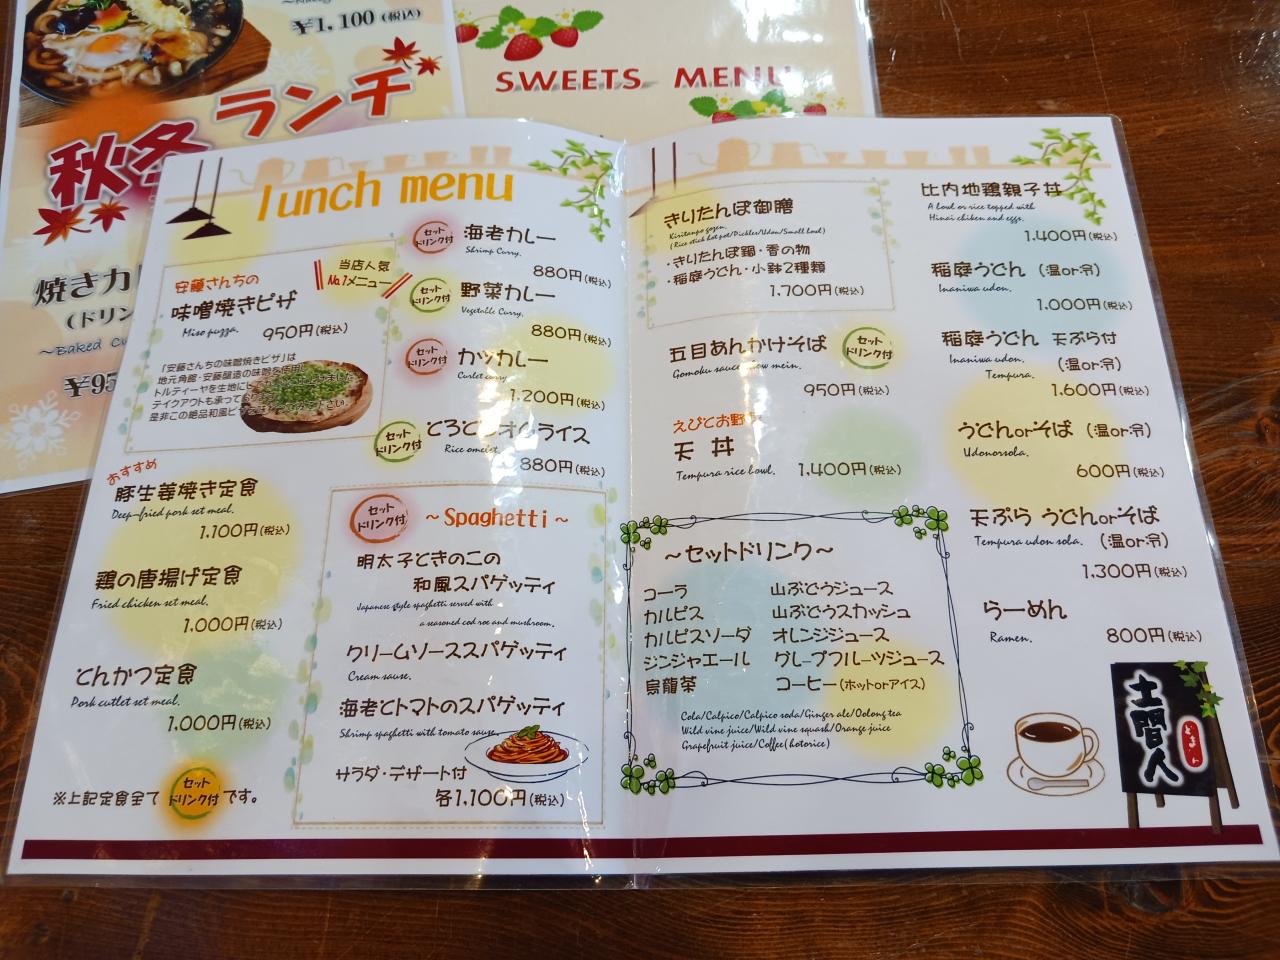 ¥1,100 (税込)
秋冬ランチ
SWEETS MENU
焼きカ
(ドリン
~Baked Cu
¥95
lunch menu
安藤さんちの
味噌焼きピザ
Miso puzza.
950円(税込)
当店人気
No.1メニュー
「安藤さんちの味噌焼きピザ」は
地元角館・安藤醸造の味噌を使用。
トルティーヤを生地に
テイクアウトも承って
是非この絶品和風ピザ
おすすめ
豚生姜焼き定食
Deep-fried pork set meal.
1,100円(税込)
鶏の唐揚げ定食
Fried chicken set meal.
1,000円(税込)
とんかつ定食
Pork cutlet set meal.
1,000円(税込)
※上記定食全て セットドリンク付 です。
セットドリンク付
海老カレー
Shrimp Curry.
880円(税込)
セットドリンク付
野菜カレー
Vegetable Curry.
880円(税込)
セットドリンク付
カツカレー
Curlet curry.
1,200円(税込)
セットドリンク付
とろとろオムライス
Rice omelet.
880円(税込)
セットドリンク付
~Spaghetti~
明太子ときのこの
和風スパゲッティ
Japanese style spaghetti served with
a seasoned cod roe and mushroom.
クリームソーススパゲッティ
Cream sause.
海老とトマトのスパゲッティ
Shrimp spaghetti with tomato sause.
サラダ・デザート付
各1,100円(税込)
きりたんぽ御膳
Kiritanpo gozen.
(Rice stick hot pot/Pickles/Udon/Small bowl)
・きりたんぽ鍋・香の物
・稲庭うどん・小鉢2種類
1,700円(税込)
五目あんかけそば
セットドリンク付
Gomoku sauce chow mein.
950円(税込)
えびとお野菜
天丼
Tempura rice bowl.
1,400円(税込)
~セットドリンク~
コーラ
カルピス
カルピスソーダ
ジンジャエール
烏龍茶
山ぶどうジュース
山ぶどうスカッシュ
オレンジジュース
グレープフルーツジュース
コーヒー(ホットorアイス)
Cola/Calpico/Calpico soda/Ginger ale/Oolong tea
Wild vine juice/Wild vine squash/Orange juice
Grapefruit juice/Coffee(hotorice)
比内地鶏親子丼
A bowl or rice topped with
Hinai chiken and eggs.
1,400円(税込)
稲庭うどん (温or冷)
Inaniwa udon.
1,000円(税込)
稲庭うどん 天ぷら付
Inaniwa udon.
(温or冷)
Tempura.
1,600円(税込)
うどんorそば (温or冷)
Udonorsoba.
600円(税込)
天ぷら うどんorそば
Tempura udon soba. (温or冷)
1,300円(税込)
らーめん
Ramen.
800円(税込)
土間人
どまん